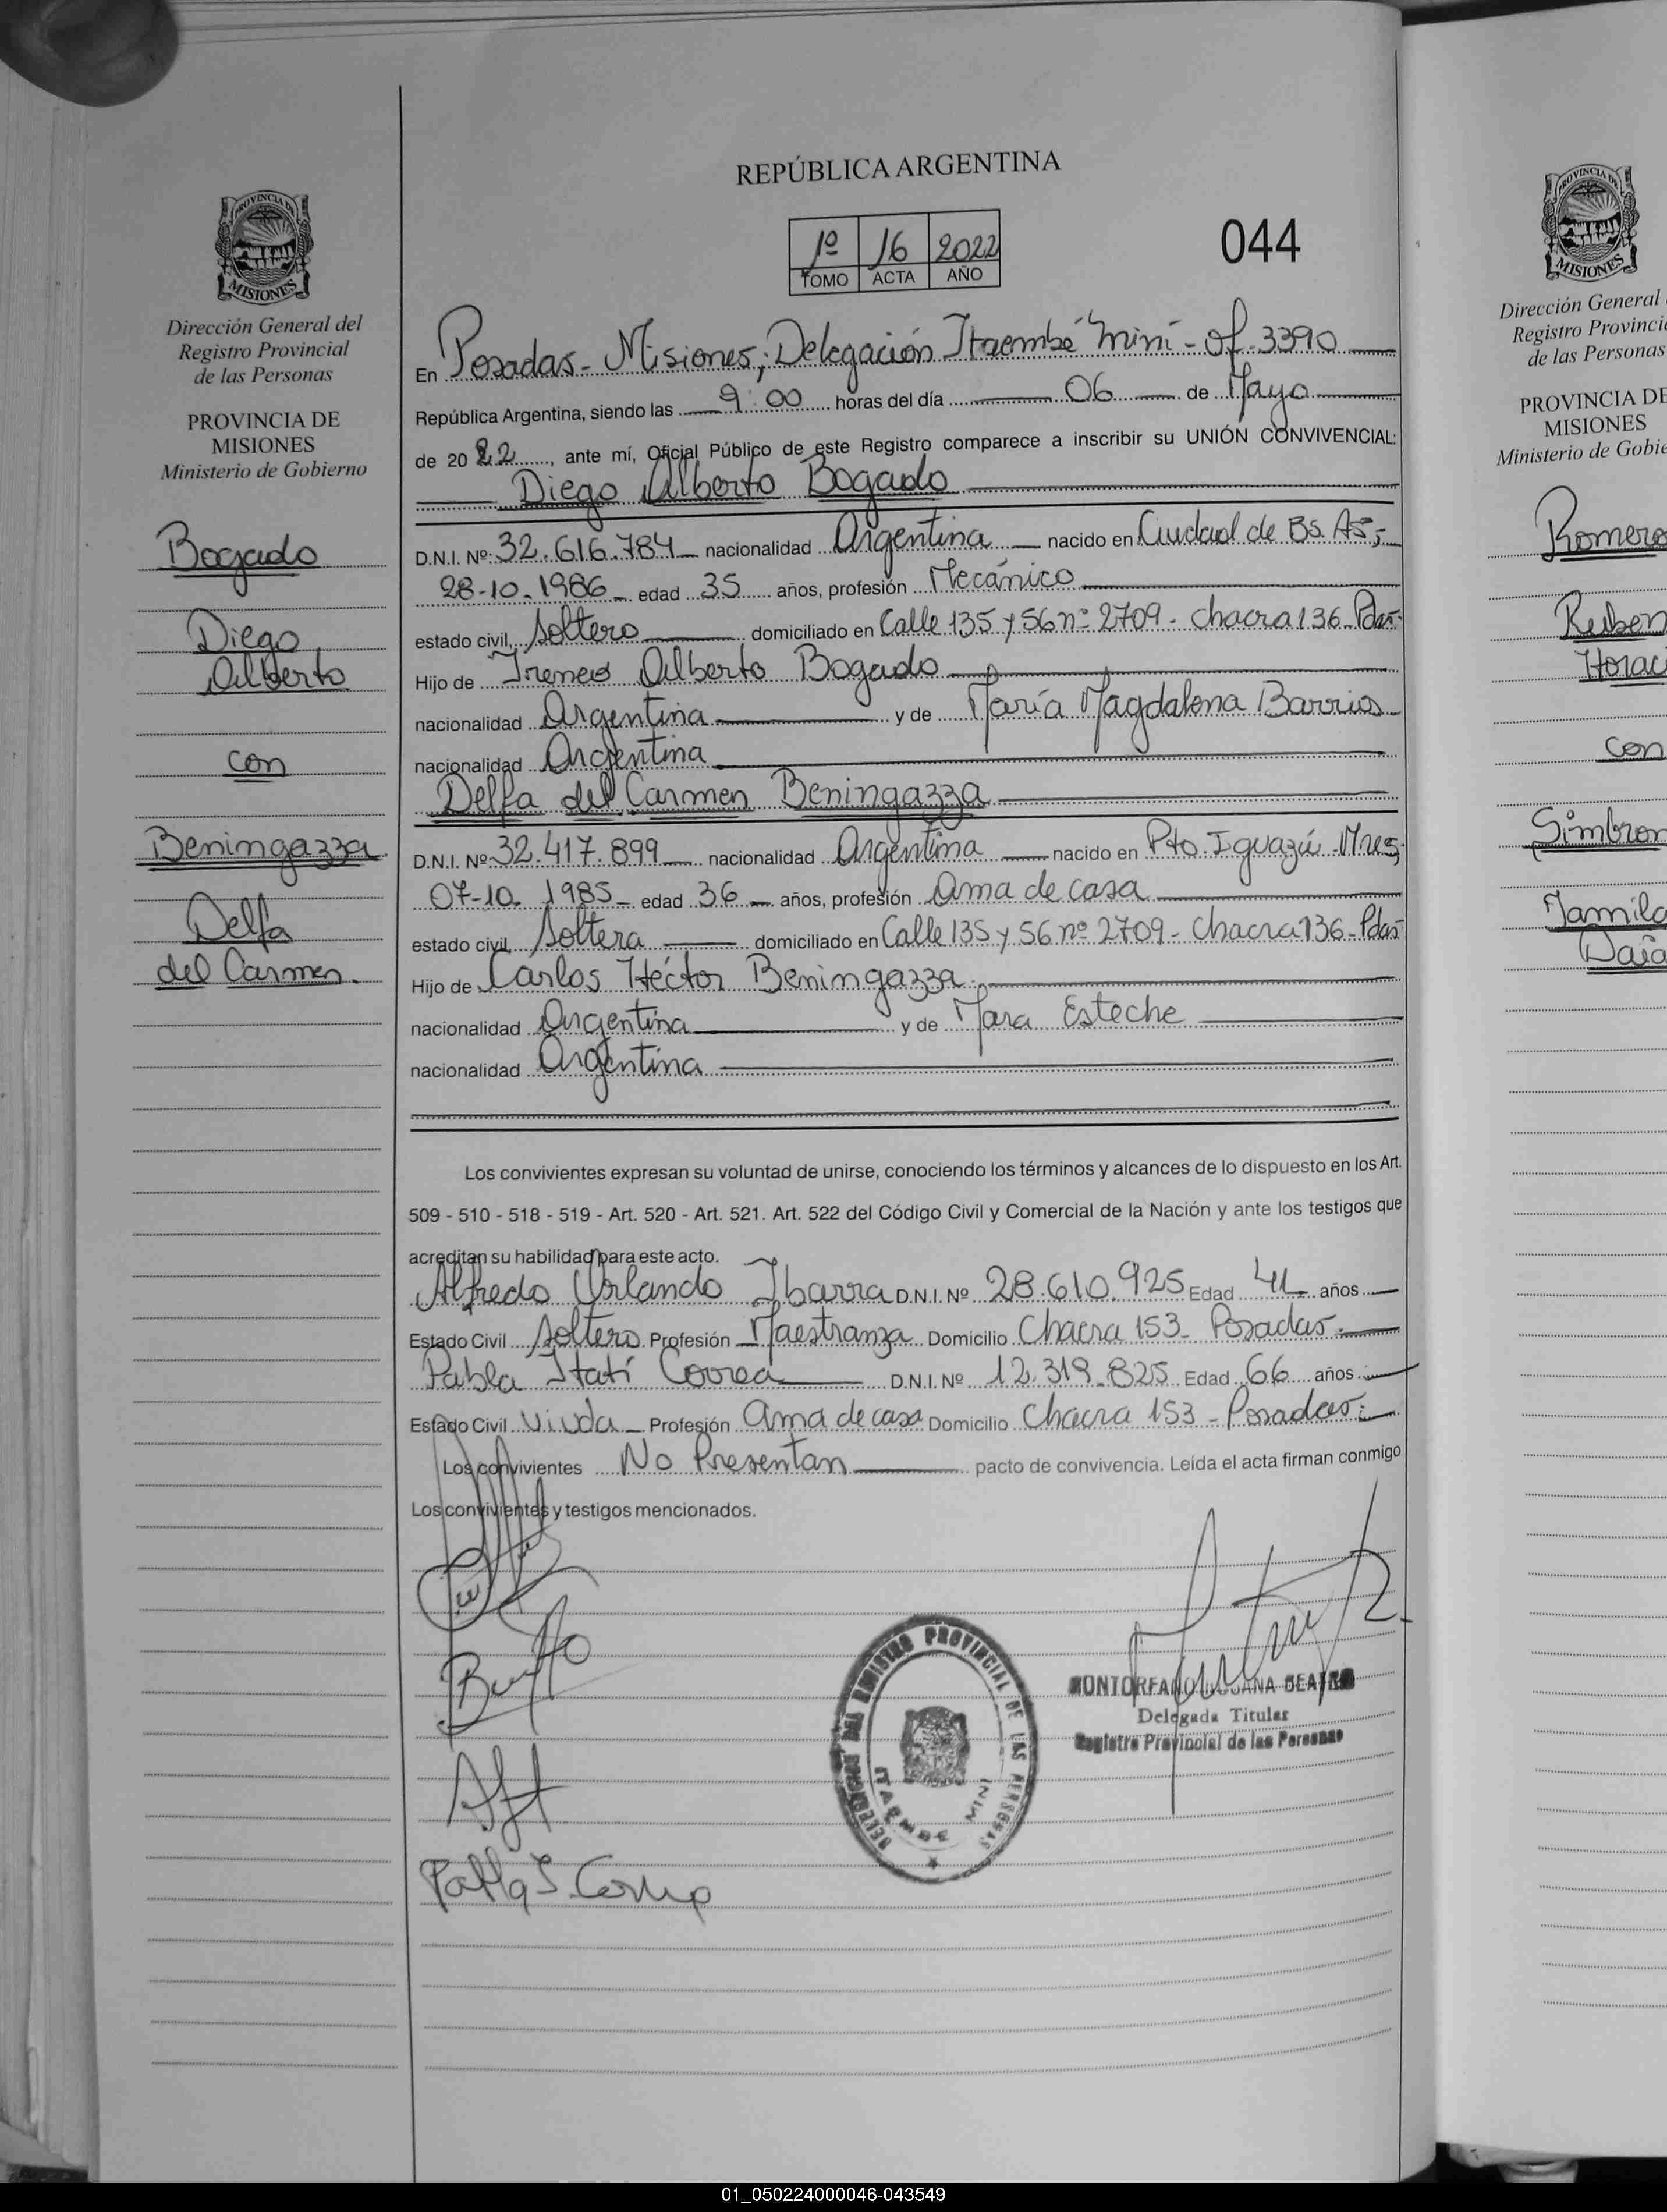 REPÚBLICA ARGENTINA
1º 16 2022
TOMO ACTA AÑO
044
PROVINCIA DE
MISIONES
Dirección General del
Registro Provincial
de las Personas
PROVINCIA DE
MISIONES
Ministerio de Gobierno
Bogado
Diego
Alberto
con
Beningazza
Delfa
del Carmen.
En Posadas - Misiones; Delegación Itaembé Miní - of. 3390
República Argentina, siendo las 9:00 horas del día 06 de Mayo
de 2022, ante mí, Oficial Público de este Registro comparece a inscribir su UNIÓN CONVIVENCIAL:
Diego Alberto Bogado
D.N.I. Nº 32.616.784 nacionalidad Argentina nacido en Ciudad de Bs. As;
28-10-1986 edad 35 años, profesión Mecánico
estado civil, Soltero domiciliado en Calle 135 y 56 nº 2709 - Chacra 136 - Pdas
Hijo de Ireneo Alberto Bogado
nacionalidad Argentina y de María Magdalena Barrios
nacionalidad Argentina
Delfa del Carmen Beningazza
D.N.I. Nº 32.417.899 nacionalidad Argentina nacido en Pto. Iguazú Mnes;
07-10-1985 edad 36 años, profesión Ama de casa
estado civil, Soltera domiciliado en Calle 135 y 56 nº 2709 - Chacra 136 - Pdas
Hijo de Carlos Héctor Beningazza
nacionalidad Argentina y de Mara Esteche
nacionalidad Argentina
Los convivientes expresan su voluntad de unirse, conociendo los términos y alcances de lo dispuesto en los Art.
509 - 510 - 518 - 519 - Art. 520 - Art. 521. Art. 522 del Código Civil y Comercial de la Nación y ante los testigos que
acreditan su habilidad para este acto.
Alfredo Orlando Ibarra D.N.I. Nº 28.610.925 Edad 41 años
Estado Civil Soltero Profesión Maestranza Domicilio Chacra 153 - Posadas.
Pabla Itatí Correa D.N.I. Nº 12.319.825 Edad 66 años
Estado Civil Viuda Profesión Ama de casa Domicilio Chacra 153 - Posadas.
Los convivientes No Presentan pacto de convivencia. Leída el acta firman conmigo
Los convivientes y testigos mencionados.
Delegada Titular
Registro Provincial de las Personas
REGISTRO PROVINCIAL DE LAS PERSONAS
ITAEMBE MINI
PROVINCIA DE
MISIONES
Dirección General
Registro Provinci
de las Personas
PROVINCIA DE
MISIONES
Ministerio de Gobie
Romero
Ruben
Horac
con
Simbron
Yamila
Daia
01_050224000046-043549